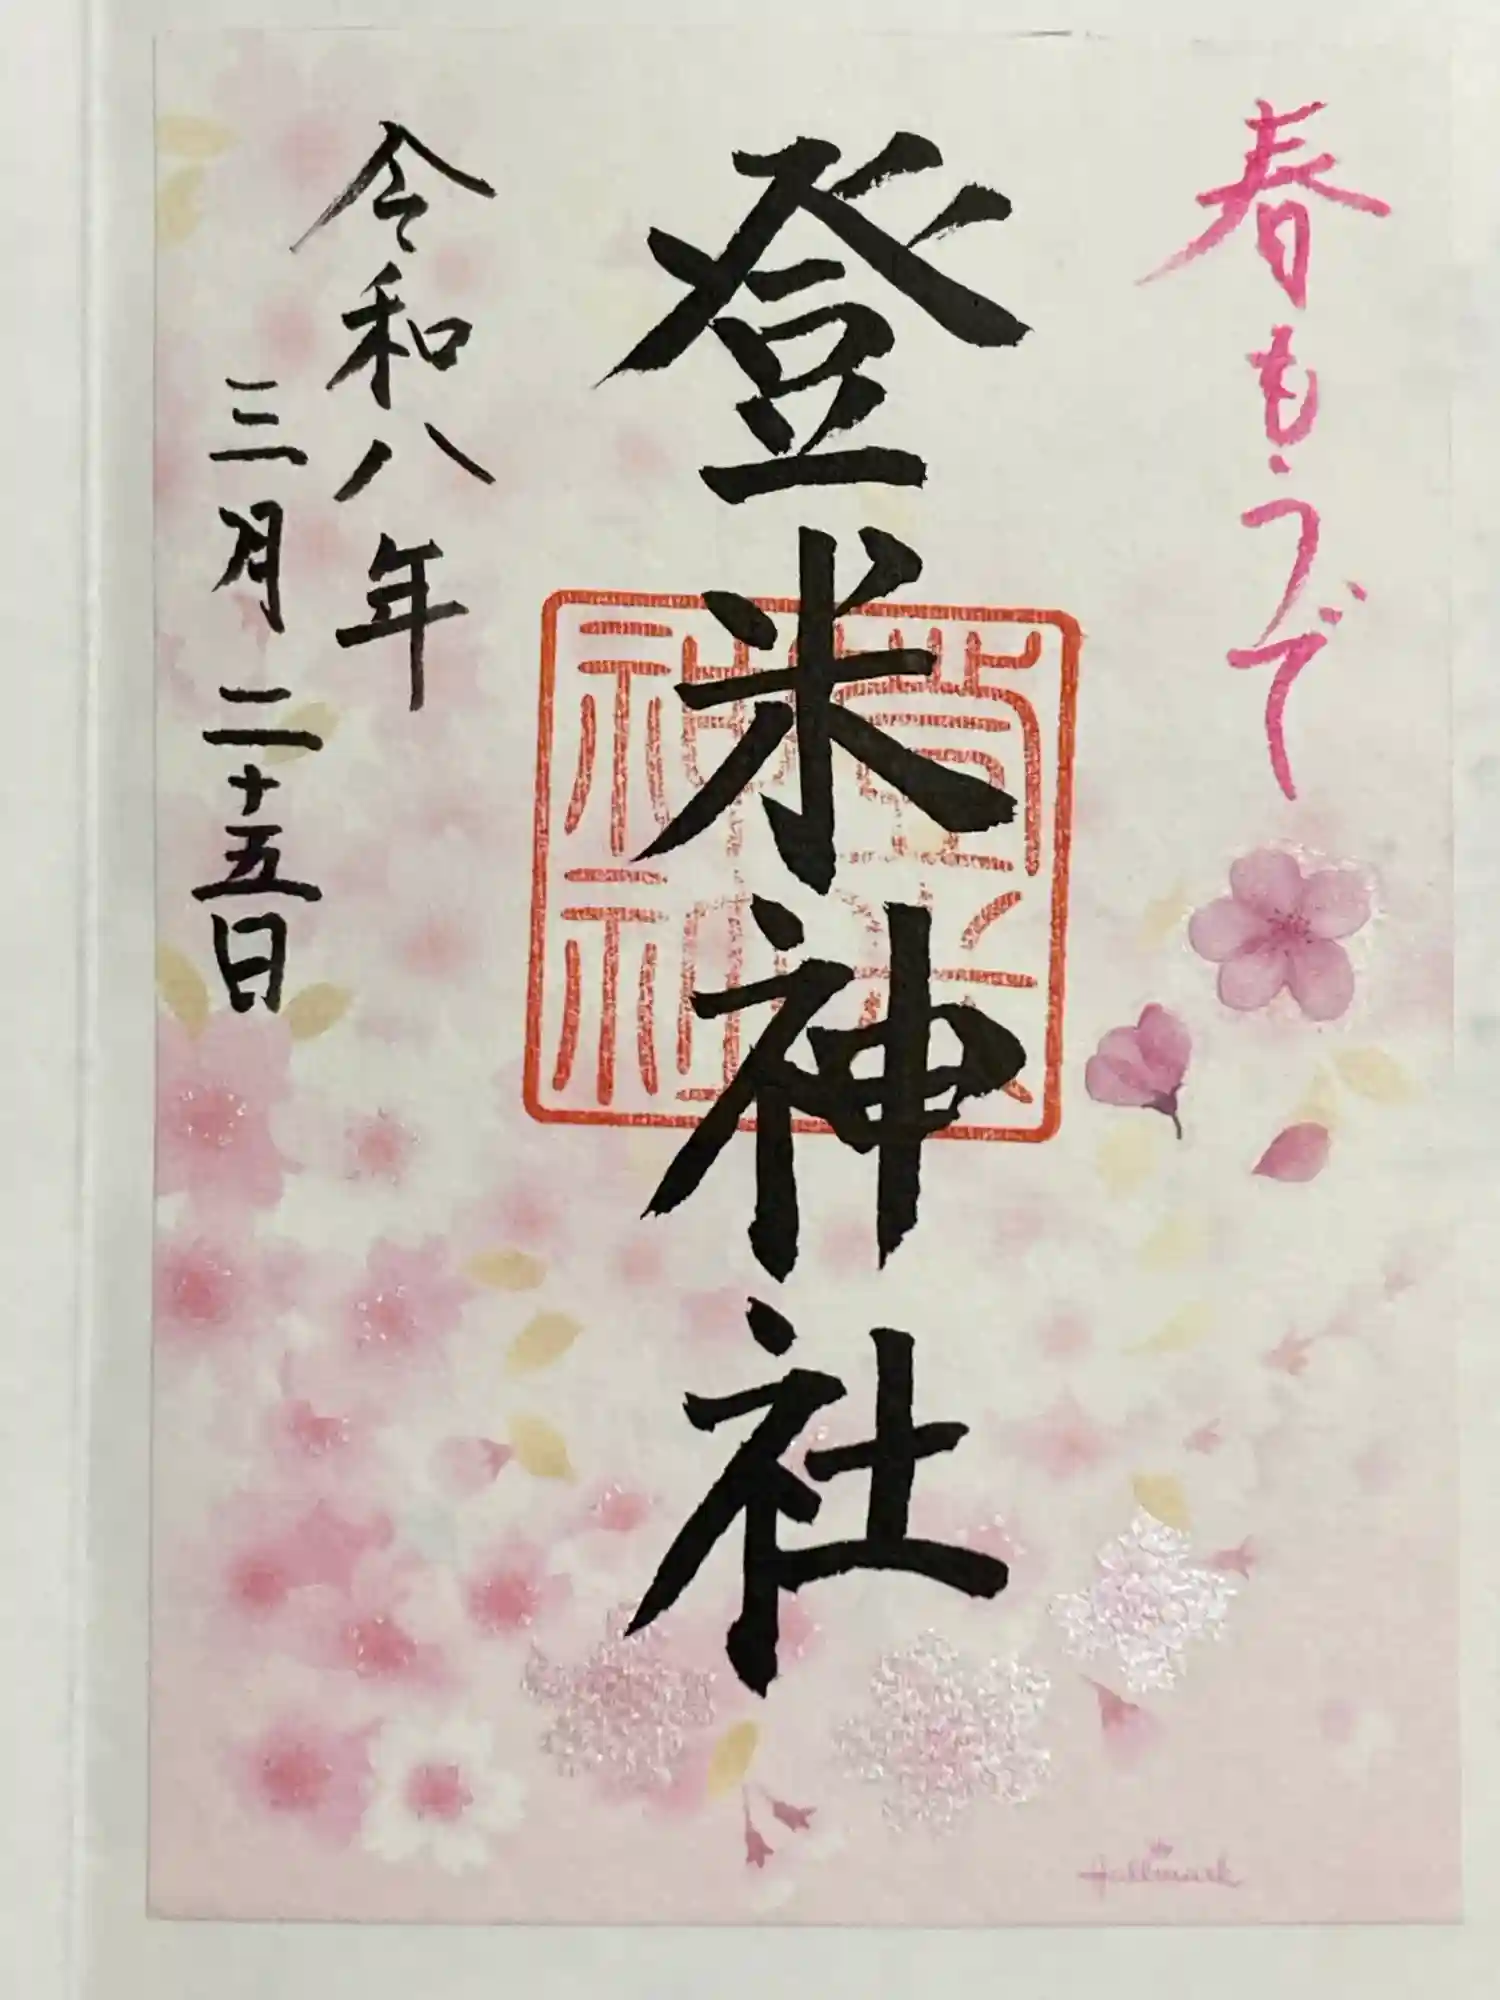 春もうで
登米神社
令和八年
三月二十五日
Hallmark